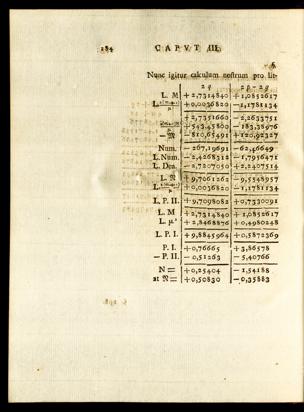 184 CAPVT III.
§.
Nunc igitur calculum nostrum pro lit-
2 q 2 p - 2 q
L. M +2,7314840 +1,0852617
+0,0036820 -1,1781134
+2,7351660 -2,2633751
+543,45800 -183,38976
- 𝔐 -810,65491 +120,92327
Num. -267,19691 -62,46649
L. Num. -2,4268313 -1,7956471
L. Den. -2,7207050 +2,2407514
L. 𝔑 +9,7061262 -9,5548957
+0,0036820 -1,1781134
L. P. II. +9,7098082 +0,7330091
L. M +2,7314840 +1,0852617
L. μ² +2,8468876 +0,4980248
L. P. I. +9,8845964 +0,5872369
P. I. +0,76665 +3,86578
- P. II. -0,51263 -5,40766
N = +0,25404 -1,54188
at 𝔑 = +0,50830 -0,35883